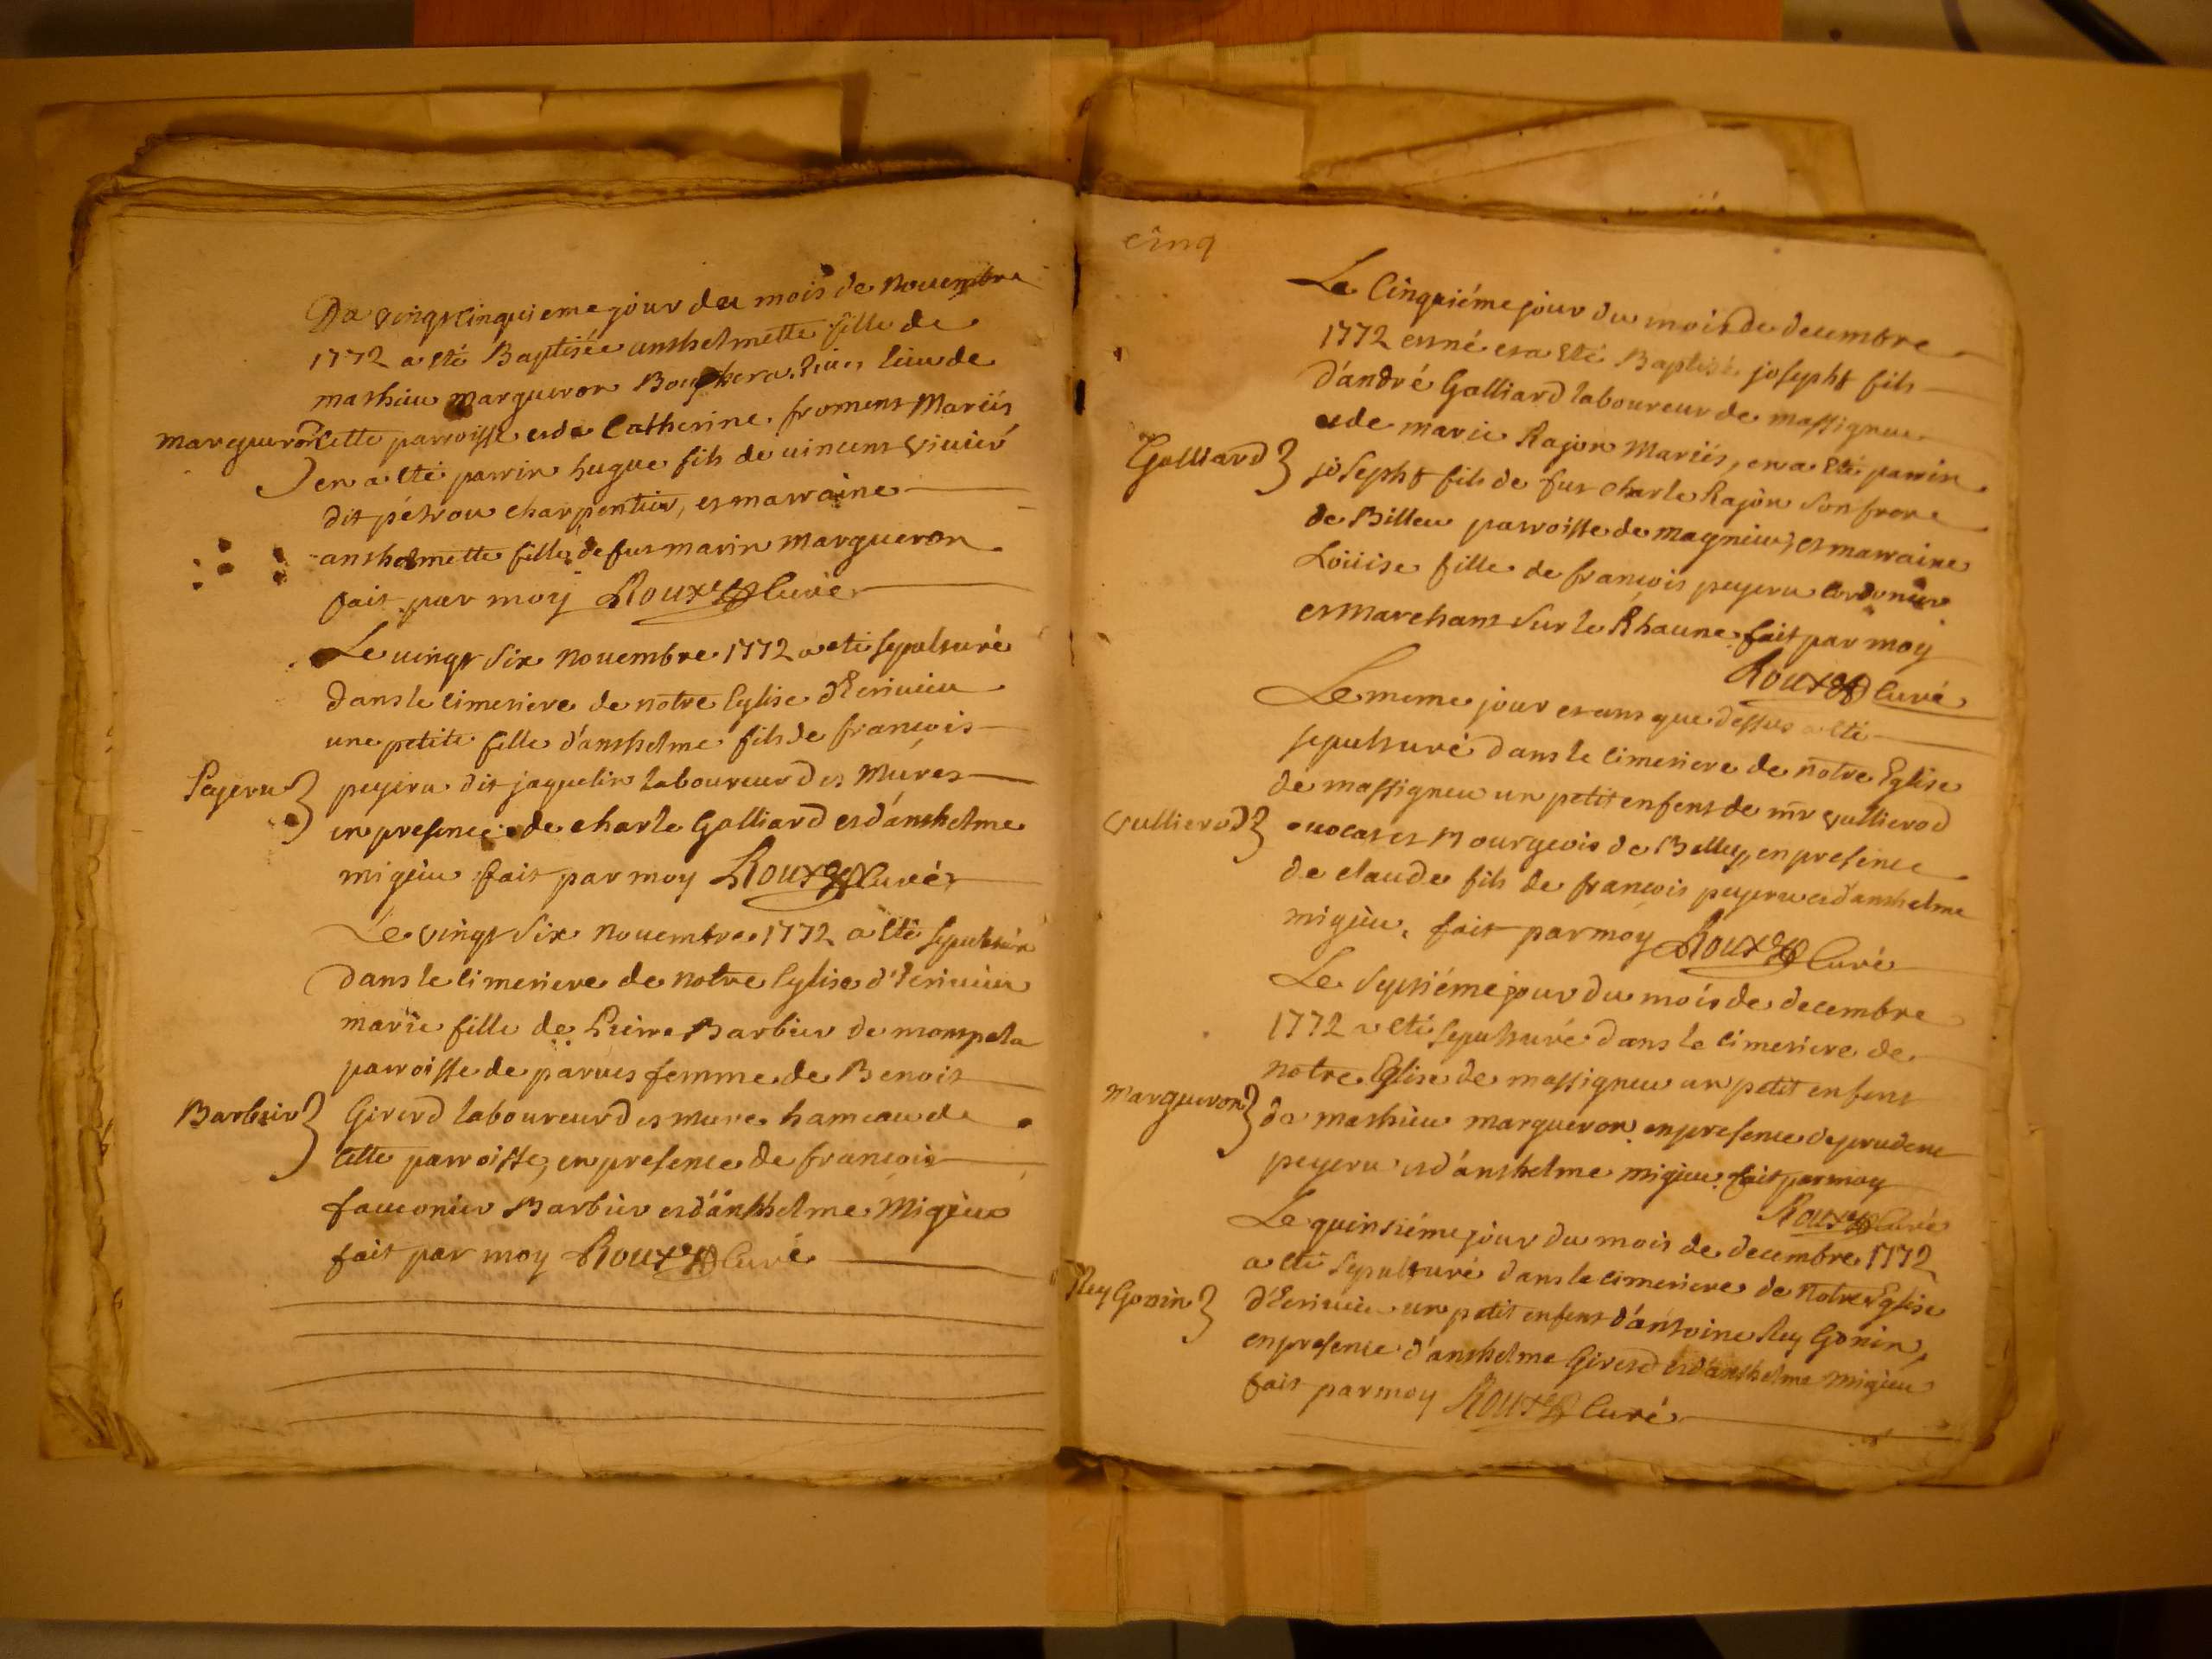 Du vingt cinquieme jour du mois de Novembre
1772 a eté Baptisée anthelmette fille de
mathieu margueron lieu de
margueron
Cette parroisse et de Catherine froment Mariés
en a eté parrin hugue fils de vincent vivier
dit pétrou charpentier, et marraine
anthelmette fille de fut marin margueron
fait par moy Roux Curé
Le vingt Six Novembre 1772 a eté sepulturé
dans le cimetiere de notre Eglise d'Ecrivieu
une petite fille d'anthelme fils de francois
Peyeru
peyeru dit jaquelin laboureur des Mures
en presence de charle Galliard et d'anthelme
migieu fait par moy Roux Curé
Le vingt Six Novembre 1772 a eté sepulturé
dans le cimetiere de notre Eglise d'Ecrivieu
marie fille de Pierre Barbier de montpela
parroisse de parves femme de Benoit
Barbier
Girerd laboureur des mures hameau de
cette parroisse, en presence de francois
fauconier Barbier et d'anthelme Migieu
fait par moy Roux Curé
cinq
Le Cinquiéme jour du mois de decembre
1772 et né et a eté Baptisé joseph fils
d'andré Galliard laboureur de massigneu
et de marie Rajon Mariés, en a eté parrin
Galliard
joseph fils de fut charle Rajon son frere
de Billeu parroisse de magnieu, et marraine
Loüise fille de francois peyeru Cordonier
et Marchant sur le Rhaune fait par moy
Roux Curé
Le meme jour et ans que dessus a eté
sepulturé dans le cimetiere de notre Eglise
de massigneu un petit enfent de mr vullierod
vullierod
avocat et Bourgeois de Belley, en presence
de claude fils de francois peyeru et d'anthelme
migieu, fait par moy Roux Curé
Le Septiéme jour du mois de decembre
1772 a eté Sepulturé dans le cimetiere de
notre Eglise de massigneu un petit enfent
margueron
de mathieu margueron en presence de prudent
peyeru et d'anthelme migieu fait par moy
Roux Curé
Le quinsiéme jour du mois de decembre 1772
a eté Sepulturé dans le cimetiere de notre Eglise
Rey Gonin
d'Ecrivieu un petit enfent d'antoine Rey Gonin,
en presence d'anthelme Girerd et d'anthelme migieu
fait par moy Roux Curé